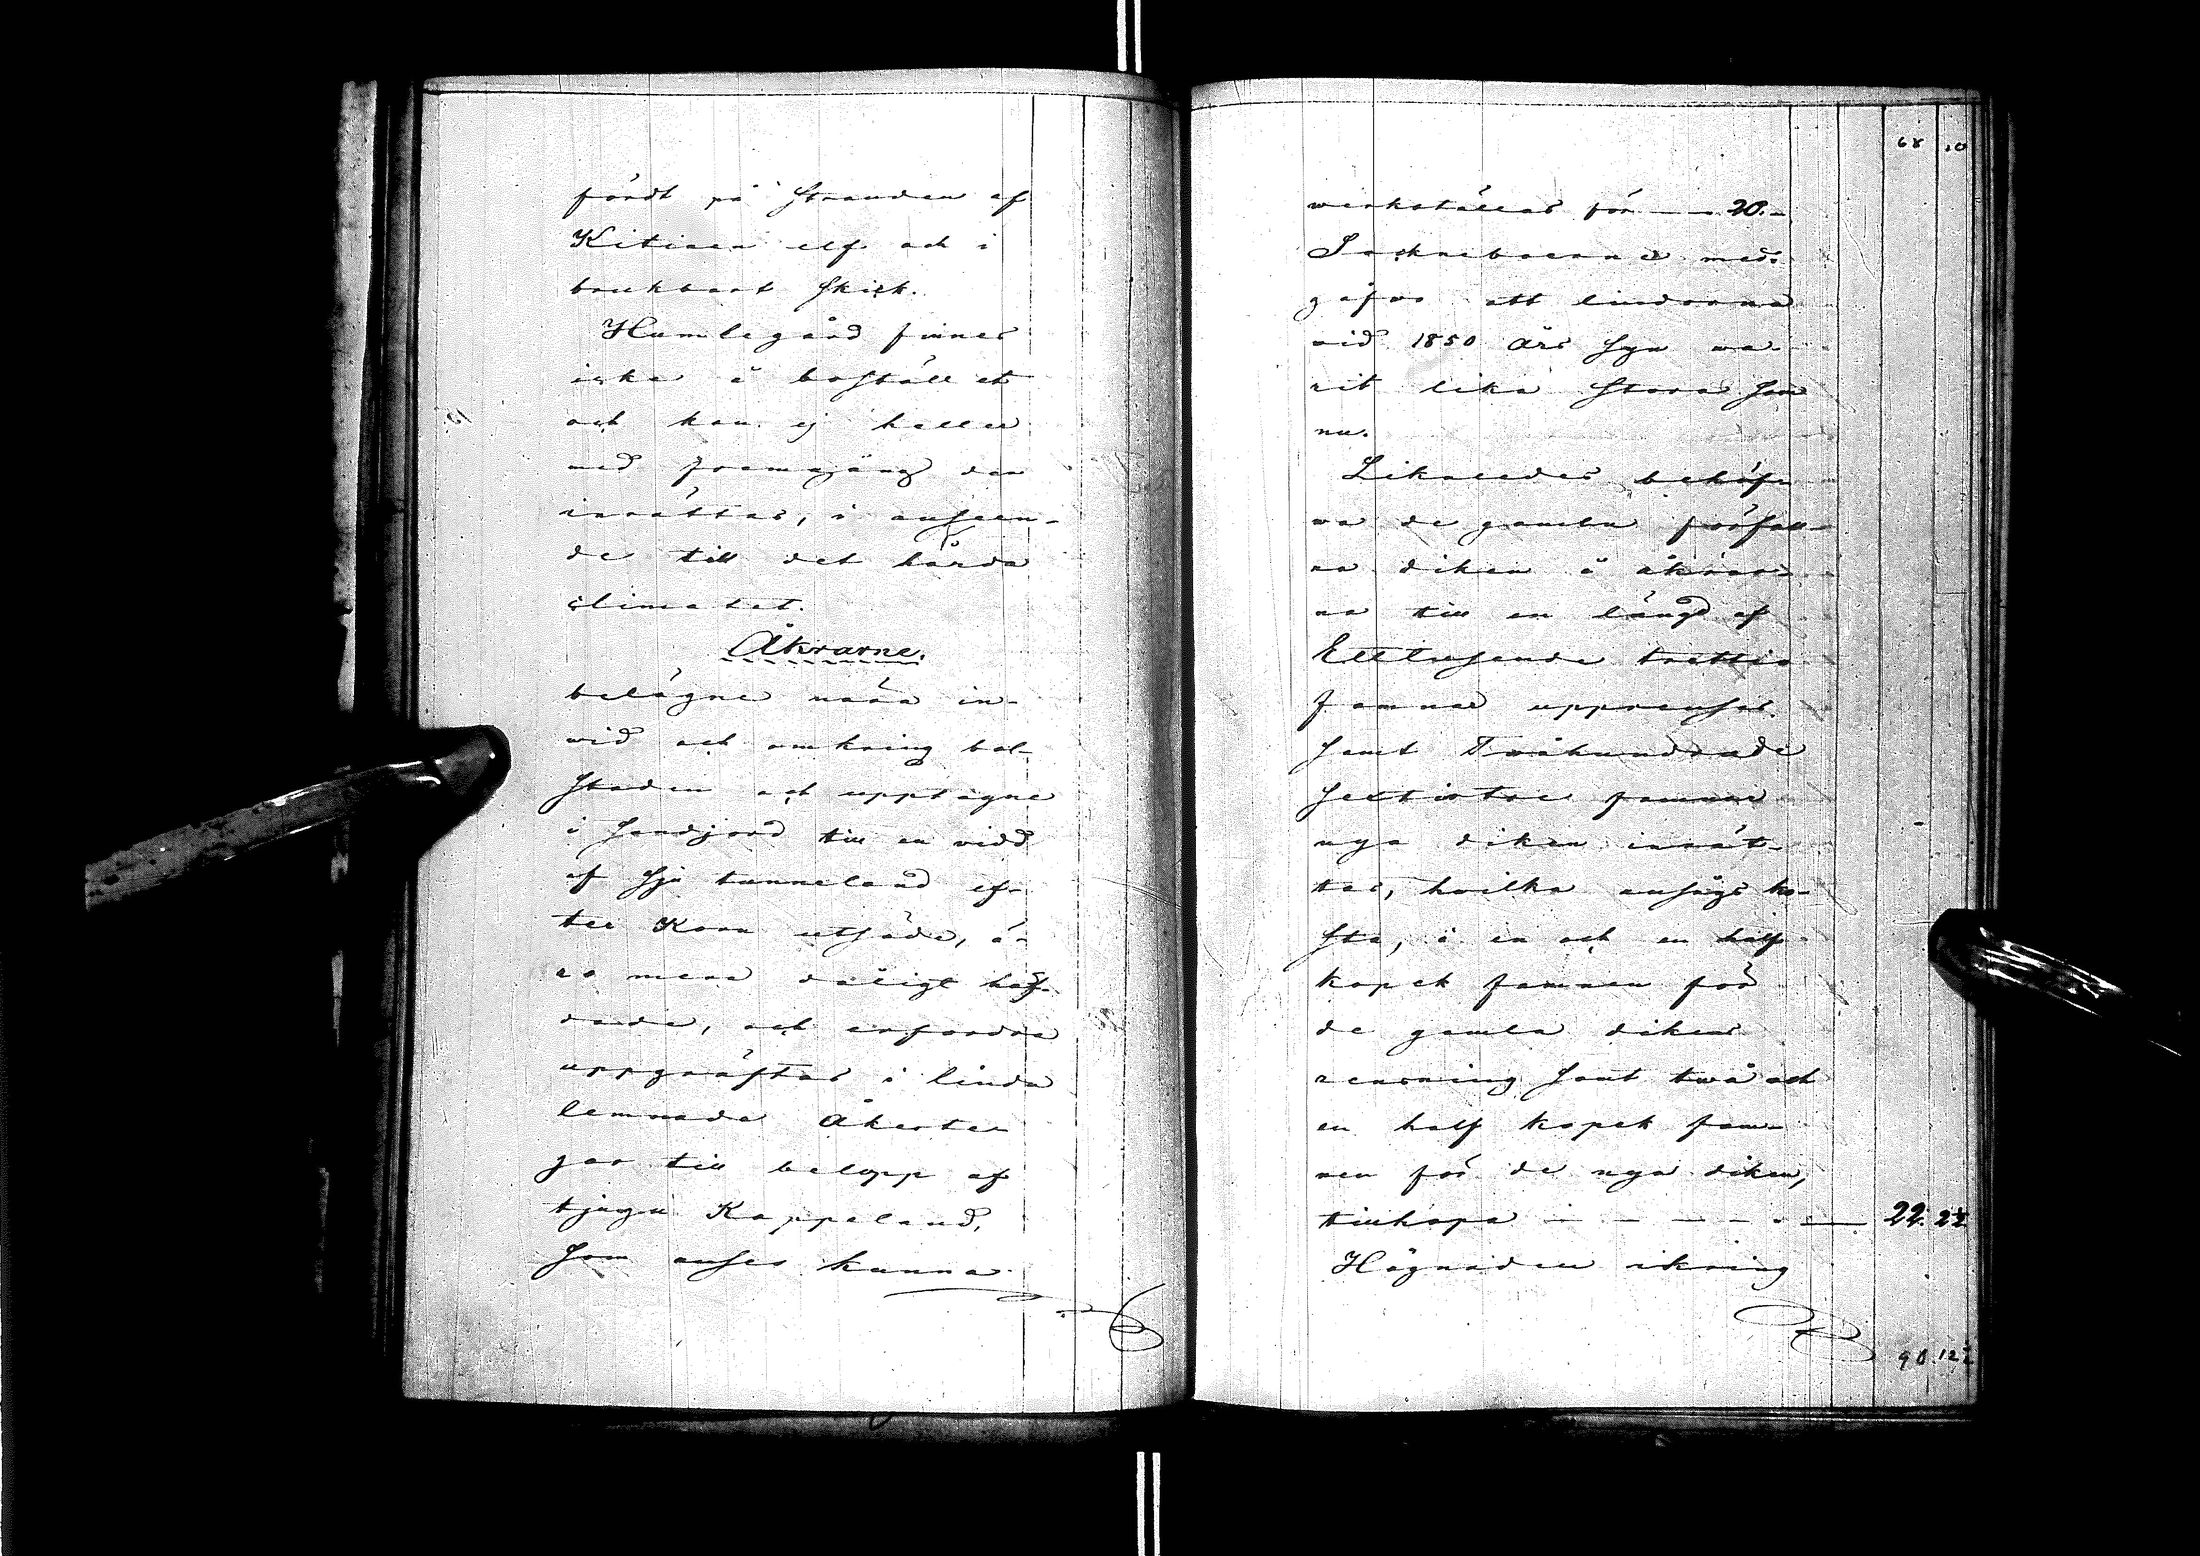 fördt på Stranden af
Kitinen elf och i
brukbart skick.
Humlegård finnes
icke å bostället
och kan ej heller
med framgång der
inrättas, i anseen-
de till det hårda
climatet.
Åkrarne.
belägne nära in-
vid och omkring bol-
staden och upptagne
i sandjord till en vidd
af sju tunneland ef-
ter Korn utsäde, ä-
ro mera dåligt häf-
dade, och erfordra
uppgräftas i linda
lemnade Åkerte-
gar till belopp af
tjugu Kappeland,
som anses kunna
68 10
werkställas för — — 20.–
Sockneboerne med-
gåfvo att lindorna
vid 1850 års syn wa-
rit lika stora som
nu.
Likaledes behöf-
va de gamla förfall-
na diken å åkrar-
na till en längd af
Ettusende trettio
famnar upprensas
samt Twåhundrade
sextiotre famnar
nya diken inrät-
tas, hvilka ansågs ko-
sta, à en och en half
kopek famnen för
de gamla dikens
rensning samt twå och
en half kopek fam-
nen för de nya diken,
tillhopa — — — — 22. 2½
Hägnaden ikring
90. 12½